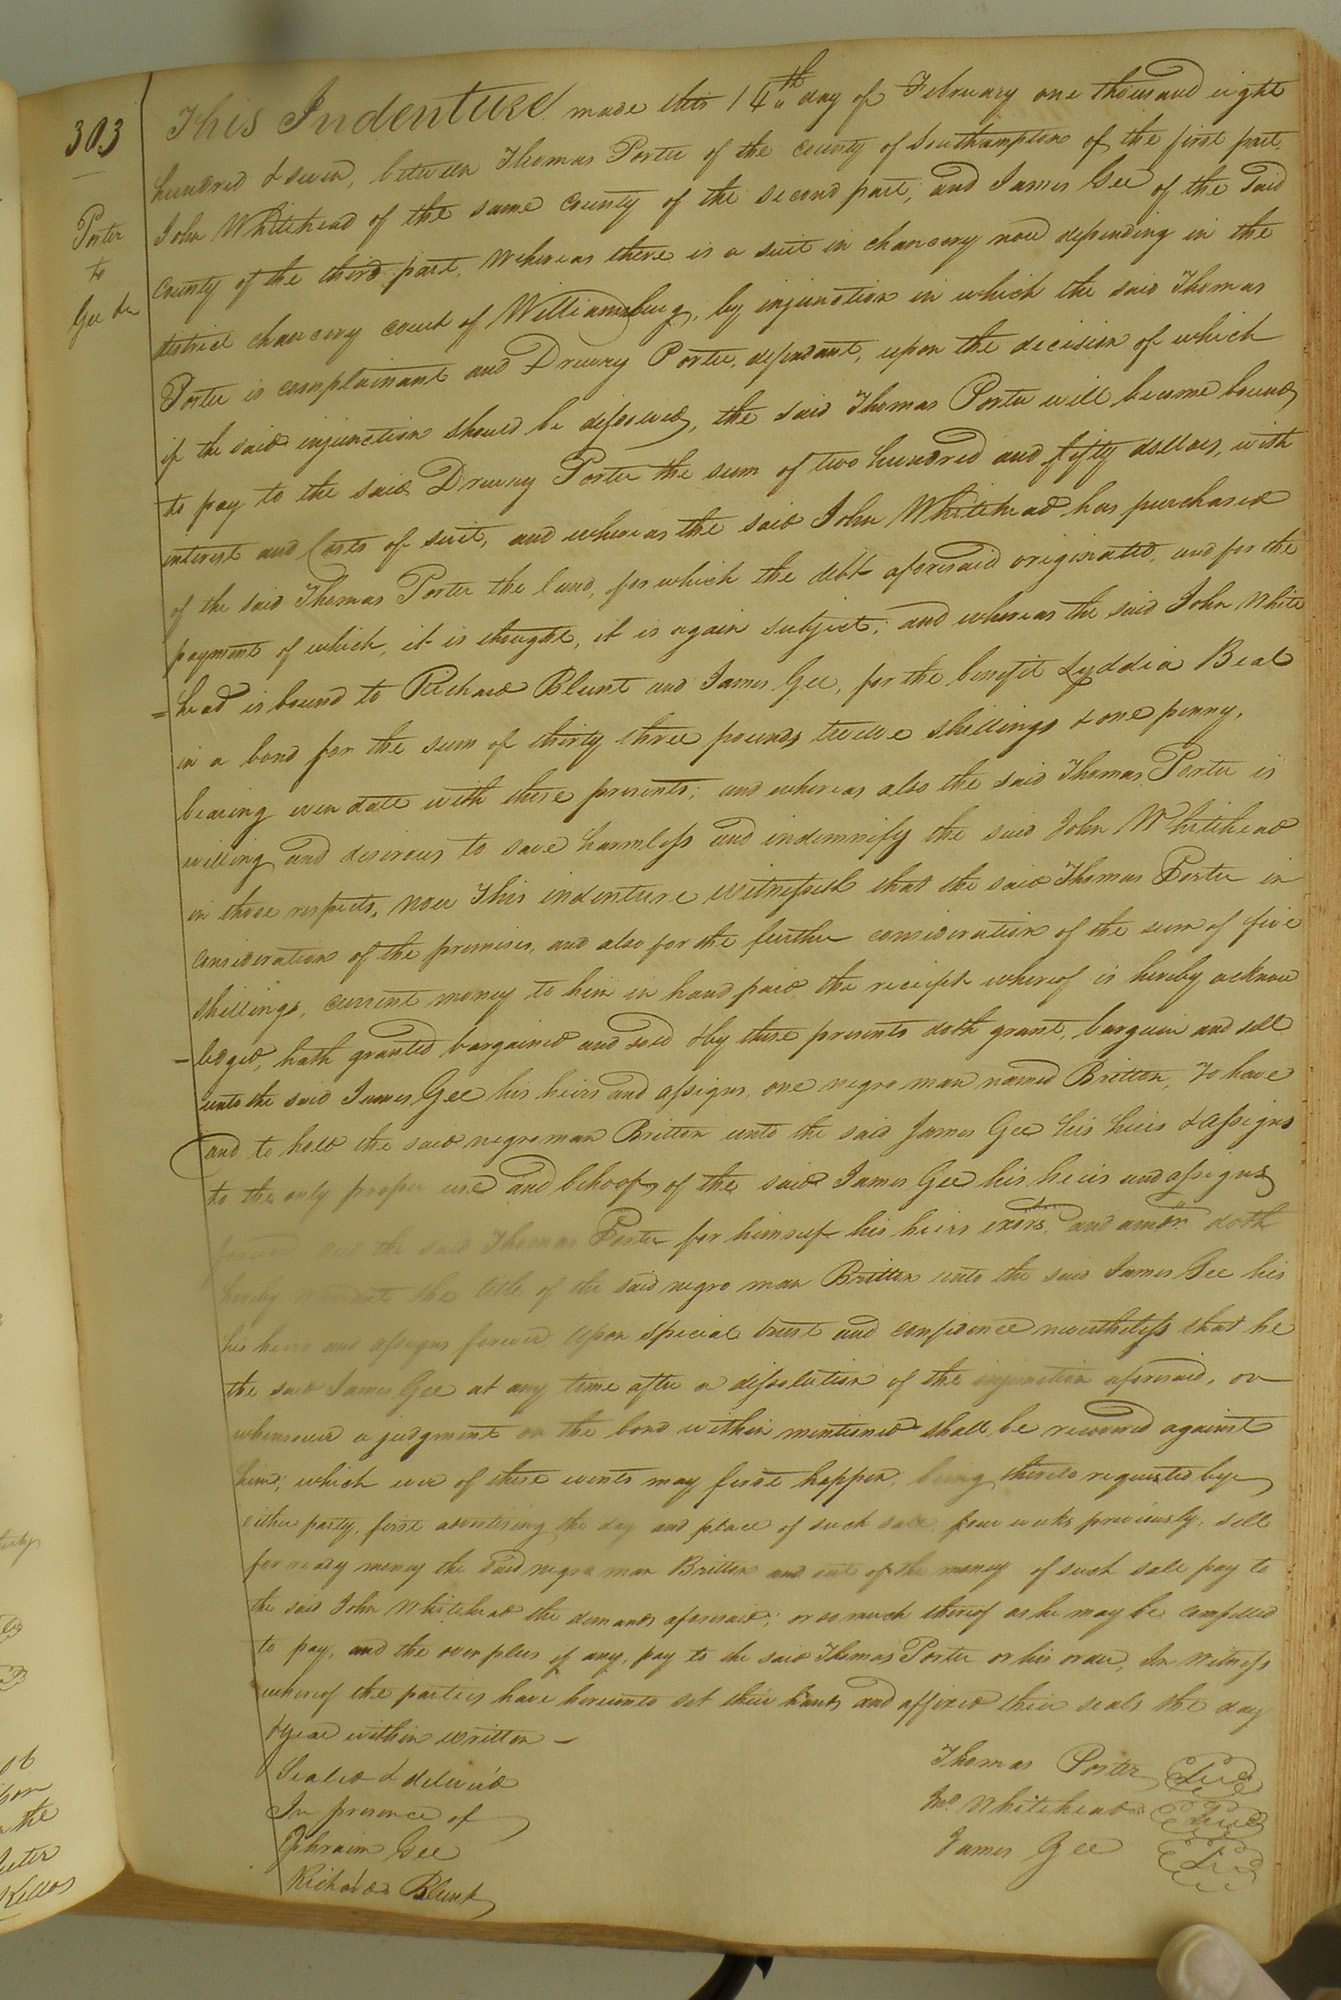 303
Porter
to
Gee
This Indenture made this 14th day of February one thousand eight
hundred & seven, between Thomas Porter of the county of Southampton of the first part,
John Whitehead of the same county of the second part, and James Gee of the said
county of the third part. Whereas there is a suit in chancery now depending in the
district chancery court of Williamsburg, by injunction in which the said Thomas
Porter is complainant and Drewry Porter, defendant, upon the decision of which
if the said injunction should be dissolved, the said Thomas Porter will become bound
to pay to the said Drewry Porter the sum of two hundred and fifty dollars, with
interest and Costs of suit, and whereas the said John Whitehead has purchased
of the said Thomas Porter the land, for which the debt aforesaid originated, and for the
payment of which, it is thought, it is again subject; and whereas the said John White
=head is bound to Richard Blunt and James Gee, for the benefit Lyddia Beal
in a bond for the sum of thirty three pounds twelve shillings & one penny,
bearing even date with these presents; and whereas also the said Thomas Porter is
willing and desirous to save harmless and indemnify the said John Whitehead
in those respects, now This indenture witnesseth that the said Thomas Porter in
consideration of the premises, and also for the further consideration of the sum of five
shillings, current money to him in hand paid the receipt whereof is hereby acknow
-ledged, hath granted bargained and sold & by these presents doth grant, bargain and sell
unto the said James Gee his heirs and assigns, one negro man named Britton, To have
and to hold the said negro man Britton unto the said James Gee his heirs & assigns
to the only proper use and behoof of the said James Gee his heirs and assigns
forever and the said Thomas Porter for himself his heirs exors. and amdr. doth
hereby warrant the title of the said negro man Britton unto the said James Gee his
his heirs and assigns forever, Upon special trust and confidence nevertheless that he
the said James Gee at any time after a dissolution of the injunction aforesaid, or
whensoever a judgment on the bond within mentioned shall be recovered against
him; which ever of these events may first happen, being thereto requested by
either party, first advertising the day and place of such sale four weeks previously, sell
for ready money the said negro man Britton and out of the money of such sale pay to
the said John Whitehead the demands aforesaid; or so much thereof as he may be compelled
to pay, and the overplus if any, pay to the said Thomas Porter or his order, In Witness
whereof the parties have hereunto set their hands and affixed their seals the day
& year within written —
Sealed & deliver'd
In presence of
Ephraim Gee
Richard Blunt
Thomas Porter Seal
Jno. Whitehead Seal
James Gee Seal